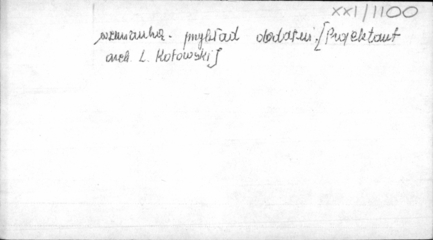 XXI/1100
wzmianka. przykład dodatni. [Projektant
arch. L. Kotowski]